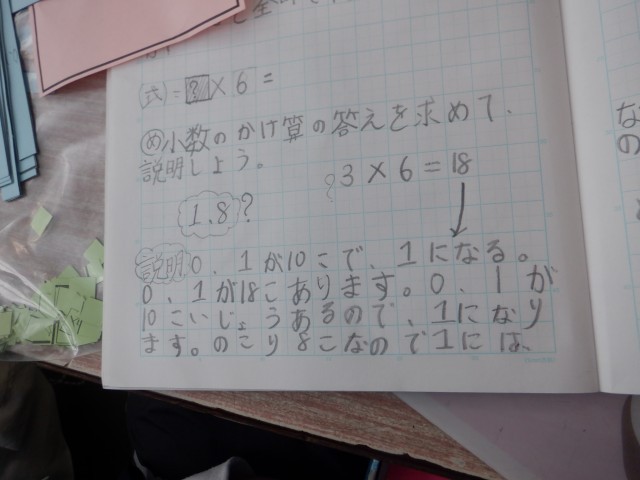 (式)=?×6=
め小数のかけ算の答えを求めて、
説明しよう。
?3×6=18
1.8?
説明0.1が10こで、1になる。
0.1が18こあります。0.1が
10こいじょうあるので、1になり
ます。のこり8こなので1には、
な
の